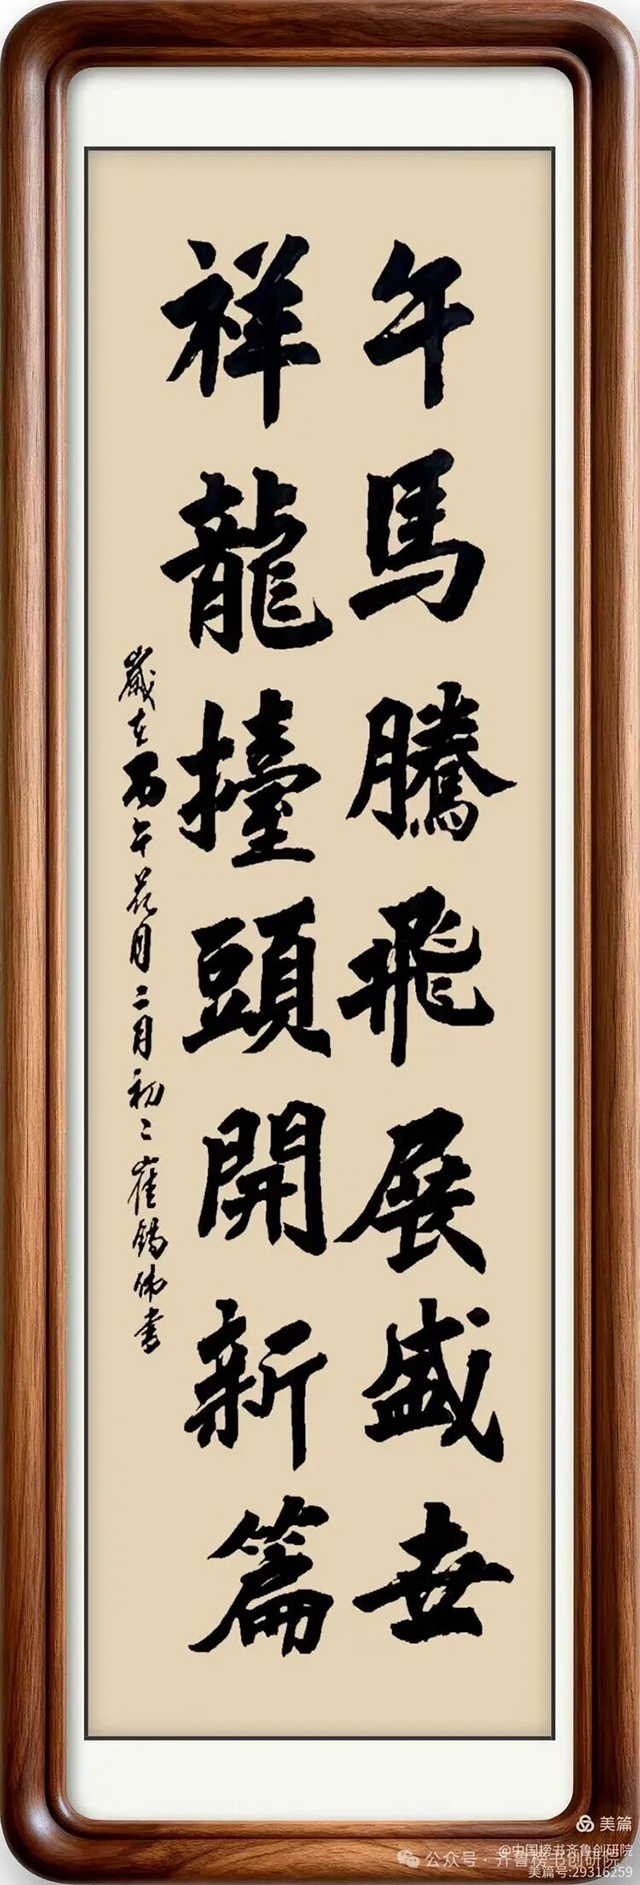 午馬騰飛展盛世
祥龍擡頭開新篇
歲在丙午花月二月初二崔錫偉書
美篇
@中国榜书齐鲁创研院
公众号·齐鲁榜书创研院
美篇号:29316259